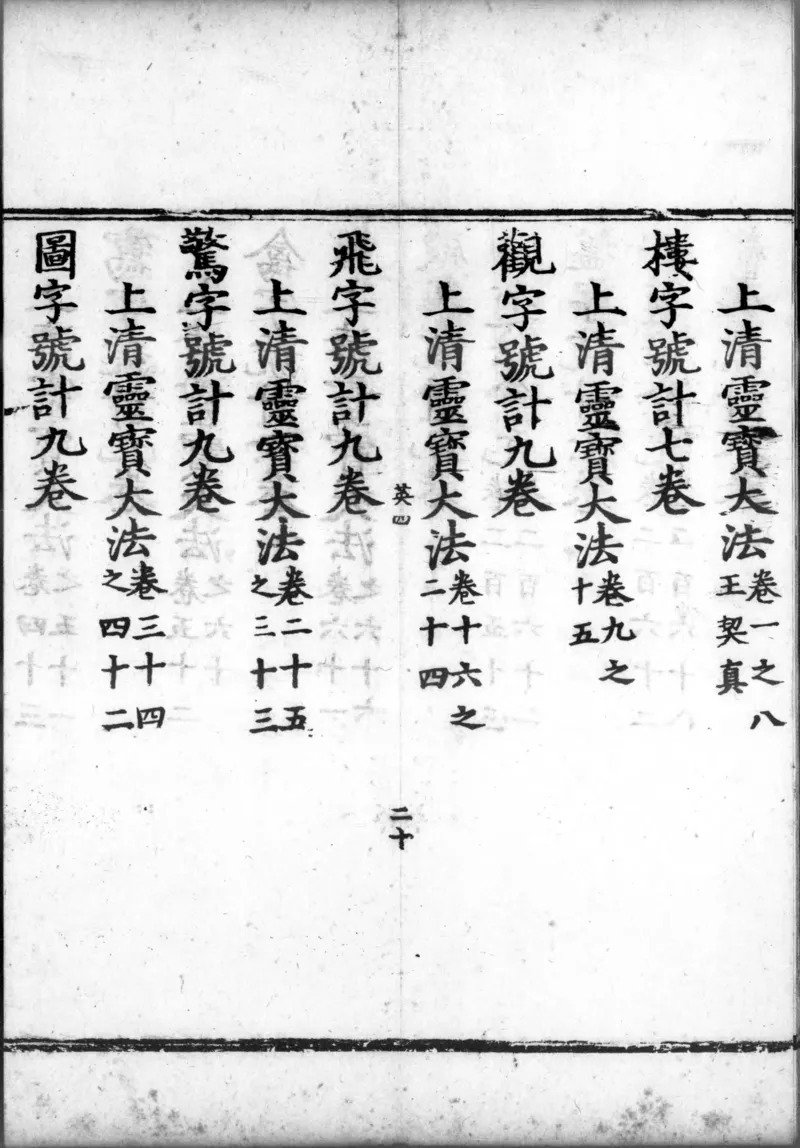 上清靈寶大法卷一之八王契真
樓字號計七卷
上清靈寶大法卷九之十五
觀字號計九卷
上清靈寶大法卷十六之二十四
英四
二十
飛字號計九卷
上清靈寶大法卷二十五之三十三
驚字號計九卷
上清靈寶大法卷三十四之四十二
圖字號計九卷